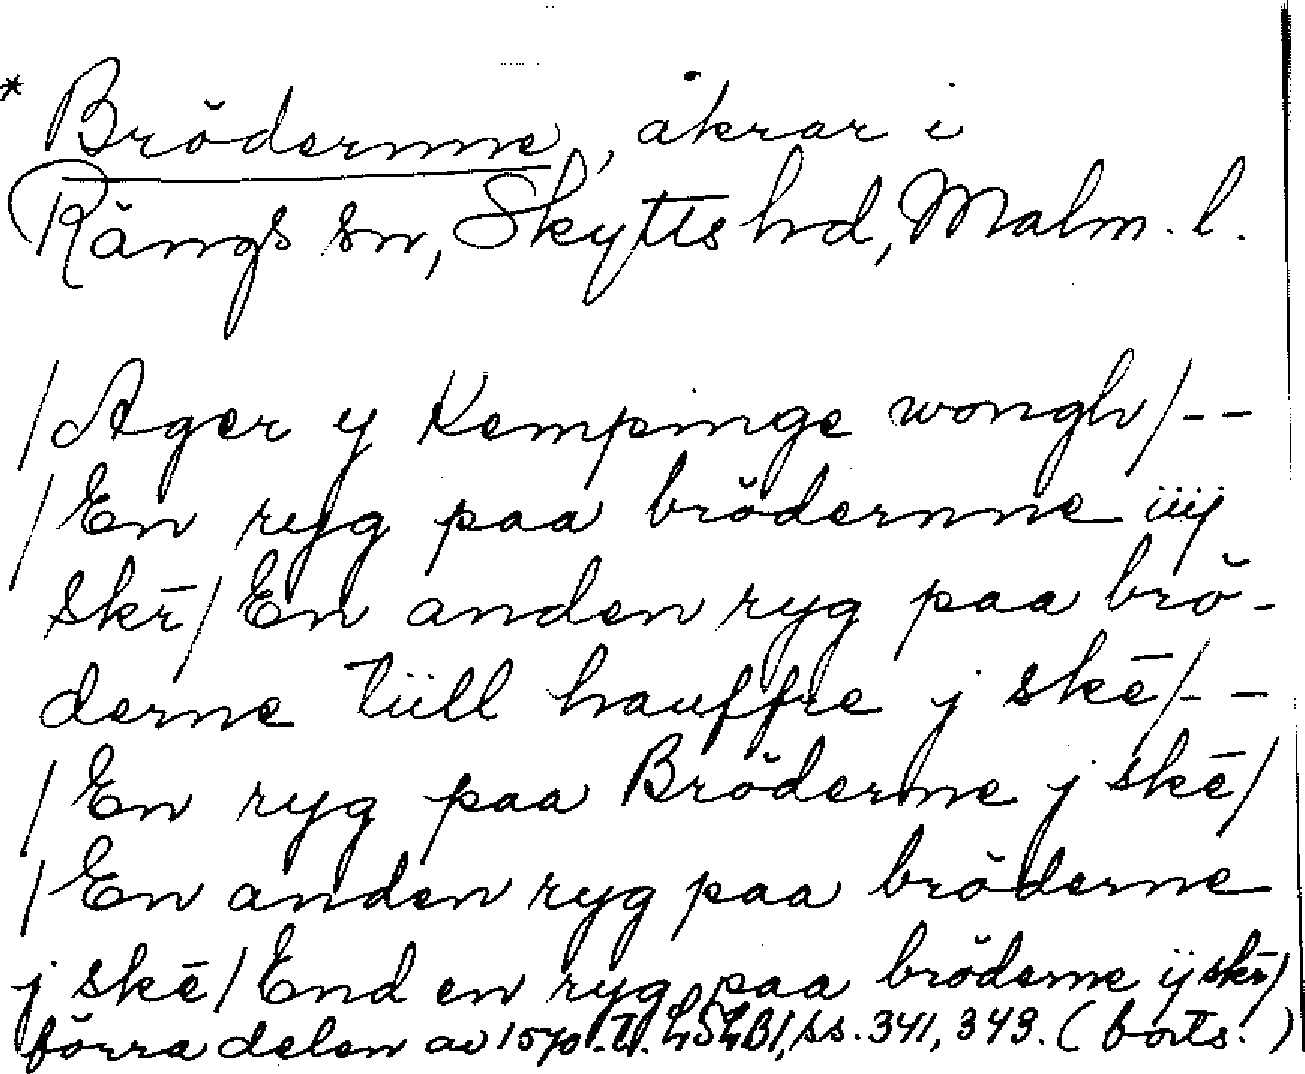 * Brödernne, åkrar i
Rängs sn, Skytts hd, Malm. l.
/Ager y Kempinge wongh/--
/En ryg paa brödernne iiij
skr̄/En anden ryg paa brö-
derne tüll hauffre j skē/--
/En ryg paa Bröderne j skē/
/En anden ryg paa bröderne
j skē/End en ryg paa bröderne ij skr̄/
förra delen av 1570-t. ss. 341, 343. (forts.)